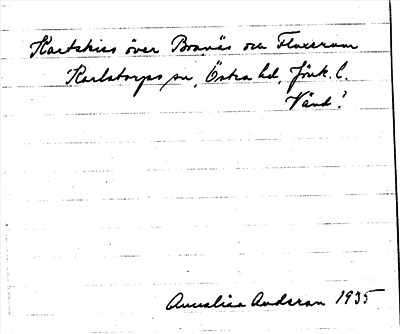 Kartskiss över Boanäs och Fluxerum
Karlstorps sn, Östra hd, Jönk. l.
Vänd!
Annalisa Anderson 1935